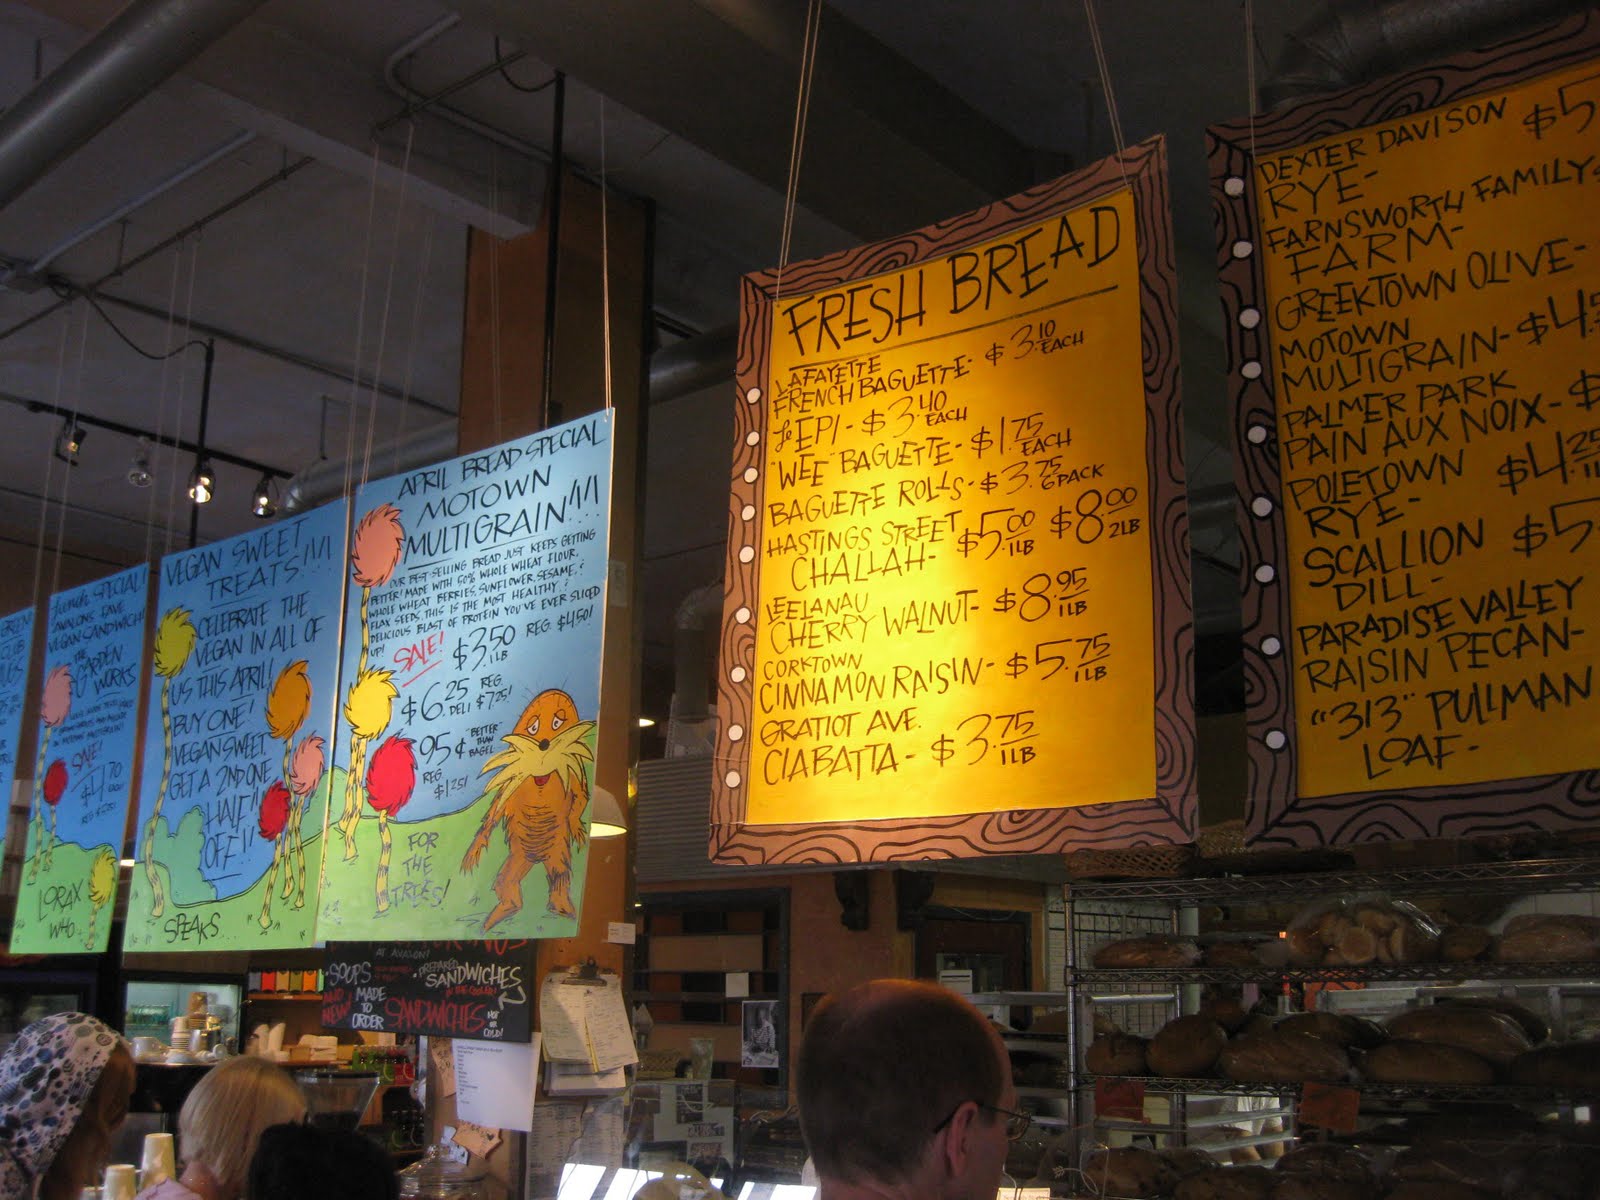 CLUB
LUNCH SPECIAL!
AVALON'S FAVE
VEGAN SANDWICH!
THE
GARDEN
WORKS
SALE!
$4.70
LORAX
WHO
VEGAN SWEET
TREATS!!!!
CELEBRATE THE
VEGAN IN ALL OF
US THIS APRIL!
BUY ONE!
VEGAN SWEET,
GET A 2ND ONE
HALF
OFF!!
SPEAKS...
APRIL BREAD SPECIAL
MOTOWN
MULTIGRAIN!!!!
OUR BEST-SELLING BREAD JUST KEEPS GETTING
BETTER! MADE WITH 50% WHOLE WHEAT FLOUR,
WHOLE WHEAT BERRIES, SUNFLOWER, SESAME, &
FLAX SEEDS, THIS IS THE MOST HEALTHY &
DELICIOUS BLAST OF PROTEIN YOU'VE EVER SLICED
UP!
SALE! $3.50 1LB REG. $4.50!
$6.25 DELI REG. $7.25!
95¢ "BETTER THAN BAGEL"
REG. $1.25!
FOR
THE
TREES!
AT AVALON!
SOUPS
AND NEW!
MADE
TO
ORDER
PREPARED
SANDWICHES
IN THE COOLER!
SANDWICHES
HOT
OR
COLD!
FRESH BREAD
LAFAYETTE
FRENCH BAGUETTE- $3.10 EACH
Le EPI- $3.40 EACH
"WEE" BAGUETTE- $1.75 EACH
BAGUETTE ROLLS- $3.75 6 PACK
HASTINGS STREET
CHALLAH- $5.00 1LB $8.00 2LB
LEELANAU
CHERRY WALNUT- $8.95 1LB
CORKTOWN
CINNAMON RAISIN- $5.75 1LB
GRATIOT AVE.
CIABATTA- $3.75 1LB
DEXTER DAVISON $5
RYE-
FARNSWORTH FAMILY
FARM-
GREEKTOWN OLIVE-
MOTOWN
MULTIGRAIN- $4.
PALMER PARK
PAIN AUX NOIX- $
POLETOWN
RYE- $4.25
SCALLION
DILL- $5
PARADISE VALLEY
RAISIN PECAN-
"313" PULLMAN
LOAF-